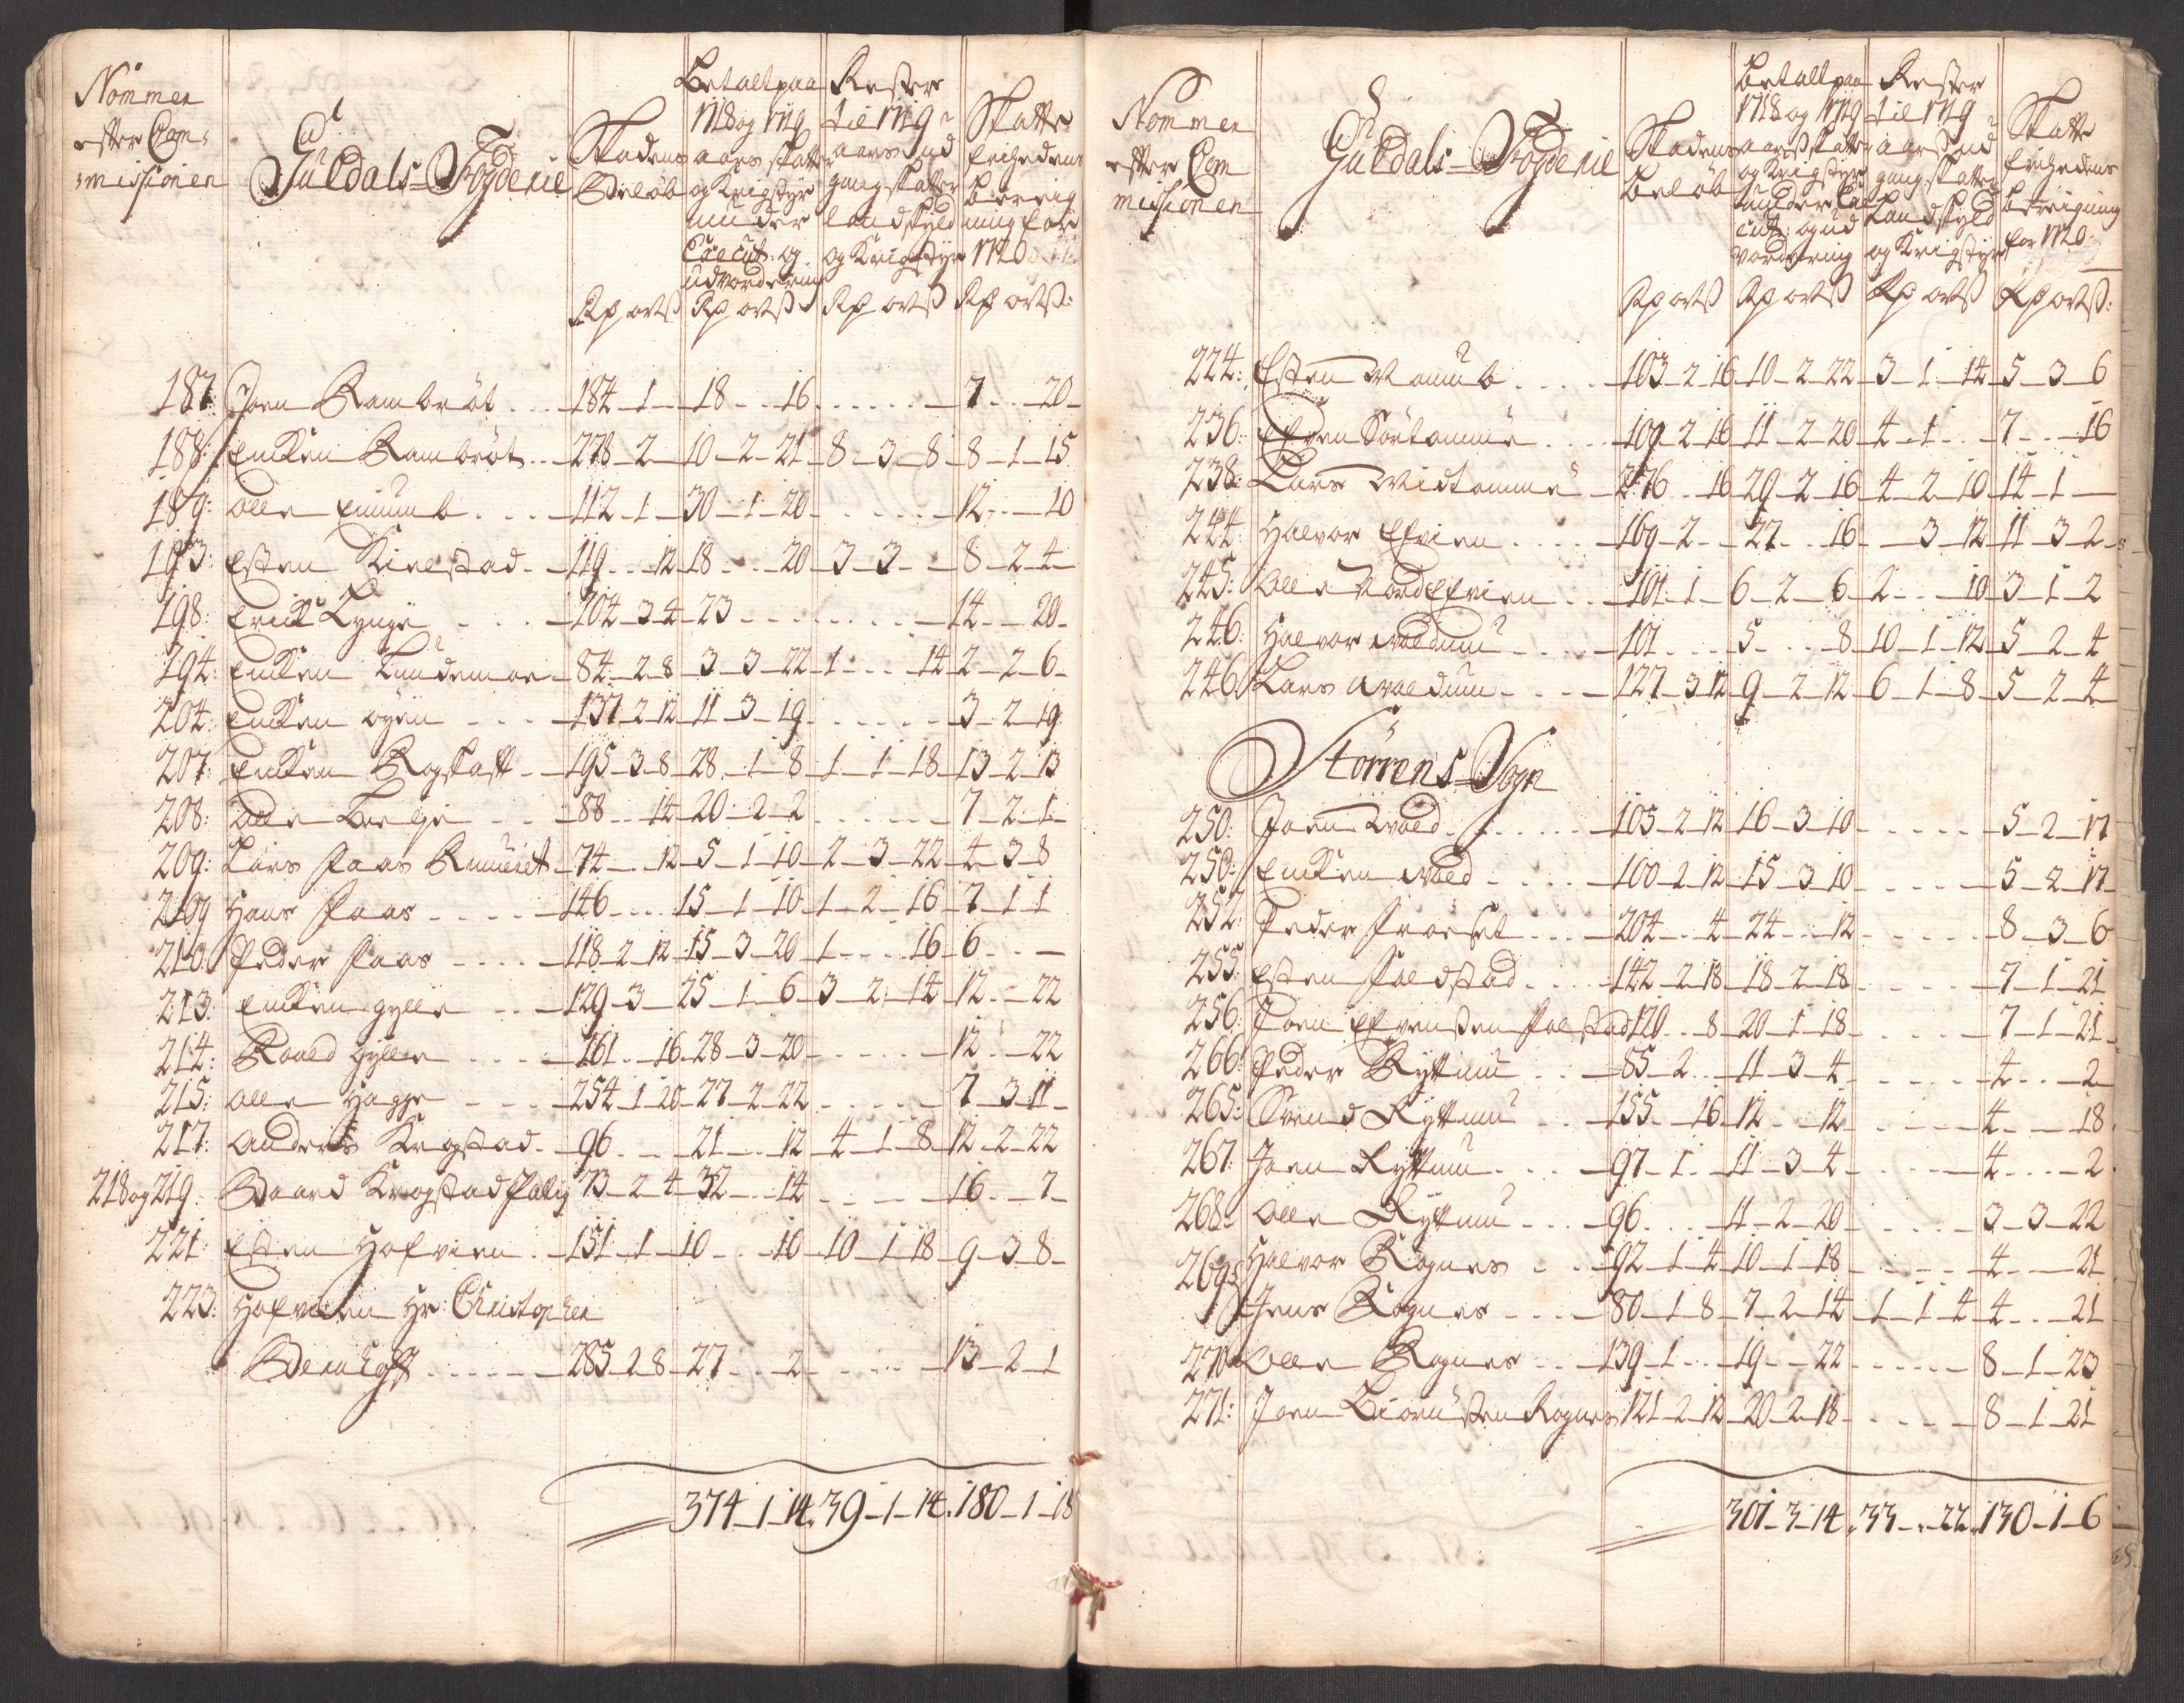 Nommer
efter Com:
missionen
Guldals Fogderie
Skadens
Beløb
Betalt paa
1718 og 1719
aars skatter
og Krigstyr
under
Execut: og
udvordering
Rester
til 1719
aars ud
gang skatter
landskyld
og Krigstyr
Skatte
frihedens
bereig
ning for
1720
Rd ort ß Rd ort ß Rd ort ß Rd ort ß:
187: Joen Rambröt 184-1- 18-..16 7-..20
188: Encken Rambröt 278-2 10-2-21 8-3-8 8-1-15
189: Olle 112-1 30-1-20 12-..10
193: Esten Kielstad 119-..12 18-..20 3-3- 8-2-4
198: Erick Lynge 104-3-4 23 14-..20
194: Encken Lundemoe 84-2-8 3-3-22 1-..14 2-2-6
204: Encken öyen 137-2-12 11-3-19 3-2-19
207: Encken Rogstatt 195-3-8 28-1-8 1-1-18 13-2-13
208: Olle 88-..14 20-2-2 7-2-1
209: Lars Foss 74-..12 5-1-10 2-3-22 4-3-8
209 Hans Foss 146 15-1-10 1-2-16 7-1-1
210: Peder Foss 118-2-12 15-3-20 1-..16 6
213: Encken gylle 129-3 25-1-6 3-2-14 12-..22
214: Roald gylle 161-..16 28-3-20 12-..22
215: Olle Hagge 254-1-20 27-2-22 7-3-11
217: Anders Krogstad 96 21-..12 4-1-8 12-2-22
218 og 219: Baard Krogstad 73-2-4 32-..14 16-..7
221: Esten Hofvien 151-1 10-..10 10-1-18 9-3-8
223: Hofvien Hr: Christopher
285-2-8 27-..2 13-2-1
374-1-14. 39-1-14. 180-1-18
Nommer
efter Com
missionen
Guldals Fogderie
Skadens
beløb
Betalt paa
1718 og 1719
aars skatter
og Krigstyr
under Exe
cut: og ud
vordering
Rester
til 1719
aars ud
gang skatter
Landskyld
og Krigstyr
Skatte
frihedens
bereigning
for 1720
Rd ort ß Rd ort ß Rd ort ß Rd ort ß:
224: Esten 103-2-16 10-2-22 3-1-14 5-3-6
236: 109-2-16 11-2-20 4-1 7-..16
238: Lars 276-..16 29-2-16 4-2-10 14-1
244: Halvor Efvien 169-2 27-..16 3-12 11-3-2
245: Olle Nordefvien 101-1 6-2-6 2-..10 3-1-2
246: Halvor Waldum 101 5-..8 10-1-12 5-2-4
246 Lars Waldum 127-3-12 9-2-12 6-1-8 5-2-4
Störrens Sogn
250: Joen Wold 103-2-12 16-3-10 5-2-17
250: Encken Wold 100-2-12 15-3-10 5-2-17
252: Peder Froeset 204-..4 24-..12 8-3-6
255: Esten Folstad 142-2-18 18-2-18 7-1-21
256: Joen Efvensten Folstad 120-..8 20-1-18 7-1-21
266: Peder Ryttum 85-2 11-3-4 4-..2
265: Svend Ryttum 155-..16 12-..12 4-..18
267: Joen Ryttum 97-1 11-3-4 4-..2
268: Olle Ryttum 96 11-2-20 3-3-22
269: Halvor Rognes 92-1-4 10-1-18 4-..21
Jens Rognes 80-1-8 7-2-14 1-1-4 4-..21
270 Olle Rognes 139-1 19-..22 8-1-23
271: Joen Rognes 121-2-12 20-2-18 8-1-21
301-3-14. 33-..22. 130-1-6